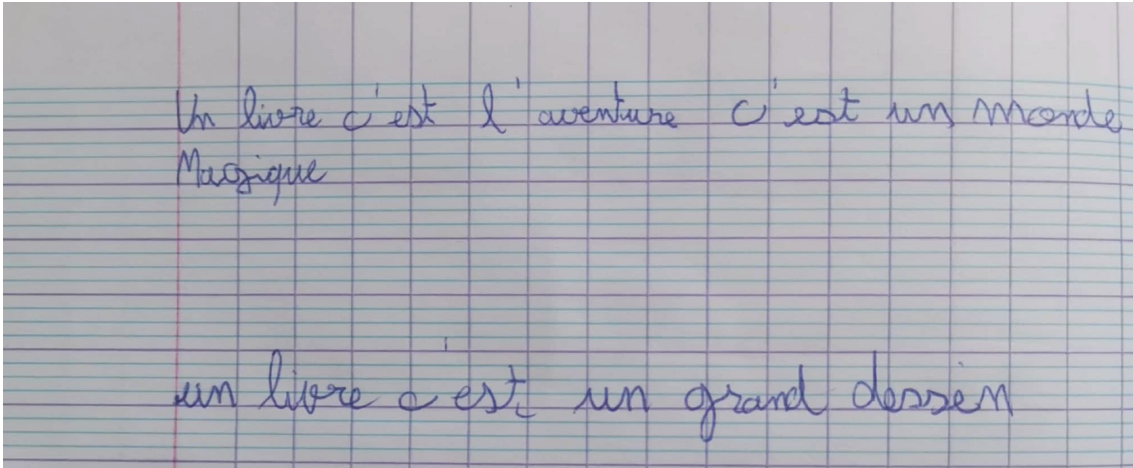 Un livre c'est l'aventure c'est un monde
Magique
un livre c'est un grand dessin